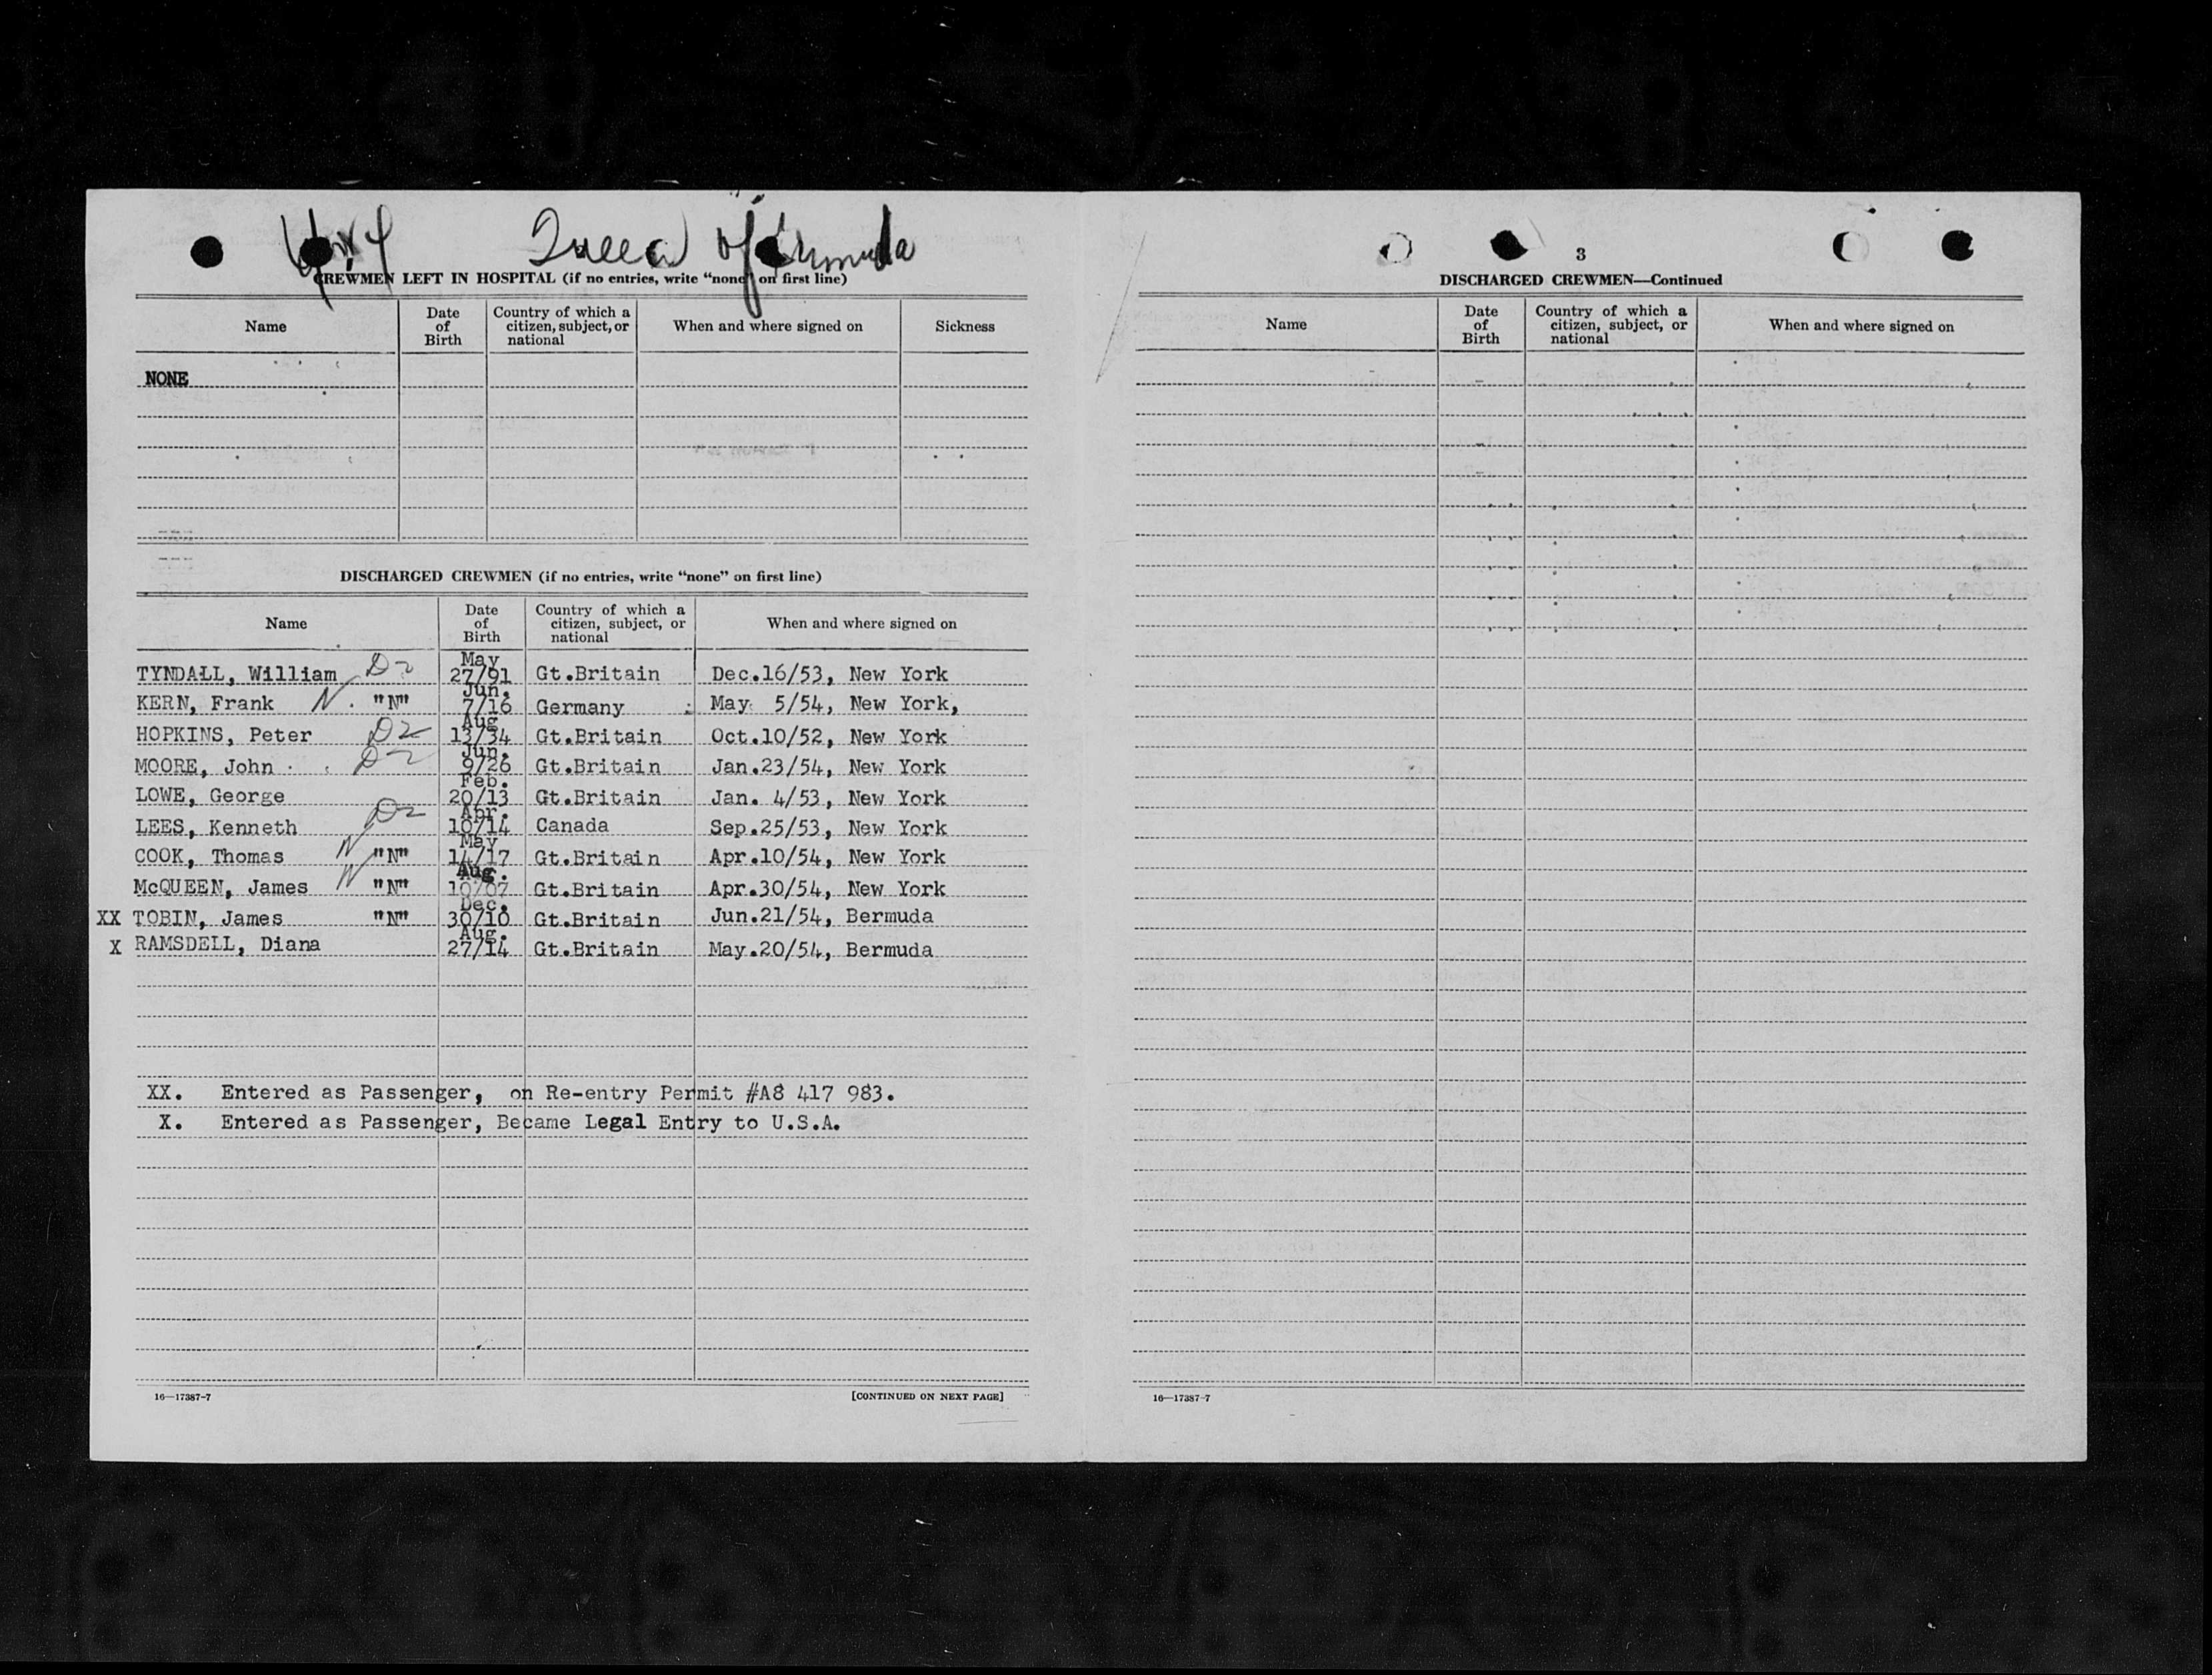 Queen of Bermuda
CREWMEN LEFT IN HOSPITAL (if no entries, write "none" on first line)
Name
Date of Birth
Country of which a citizen, subject, or national
When and where signed on
Sickness
NONE
DISCHARGED CREWMEN (if no entries, write "none" on first line)
Name
Date of Birth
Country of which a citizen, subject, or national
When and where signed on
TYNDALL, William D2 May 27/91 Gt.Britain Dec.16/53, New York
KERN, Frank N "N" Jun. 7/16 Germany May 5/54, New York,
HOPKINS, Peter D2 Aug 13/34 Gt.Britain Oct.10/52, New York
MOORE, John D2 Jun. 9/26 Gt.Britain Jan.23/54, New York
LOWE, George Feb. 20/13 Gt.Britain Jan. 4/53, New York
LEES, Kenneth D2 Apr. 10/14 Canada Sep.25/53, New York
COOK, Thomas N "N" May 14/17 Gt.Britain Apr.10/54, New York
McQUEEN, James N "N" Aug. 10/07 Gt.Britain Apr.30/54, New York
XX TOBIN, James "N" Dec. 30/10 Gt.Britain Jun.21/54, Bermuda
X RAMSDELL, Diana Aug. 27/14 Gt.Britain May.20/54, Bermuda
XX. Entered as Passenger, on Re-entry Permit #A8 417 983.
X. Entered as Passenger, Became Legal Entry to U.S.A.
16—17387-7
[CONTINUED ON NEXT PAGE]
3
DISCHARGED CREWMEN—Continued
Name
Date of Birth
Country of which a citizen, subject, or national
When and where signed on
16—17387-7